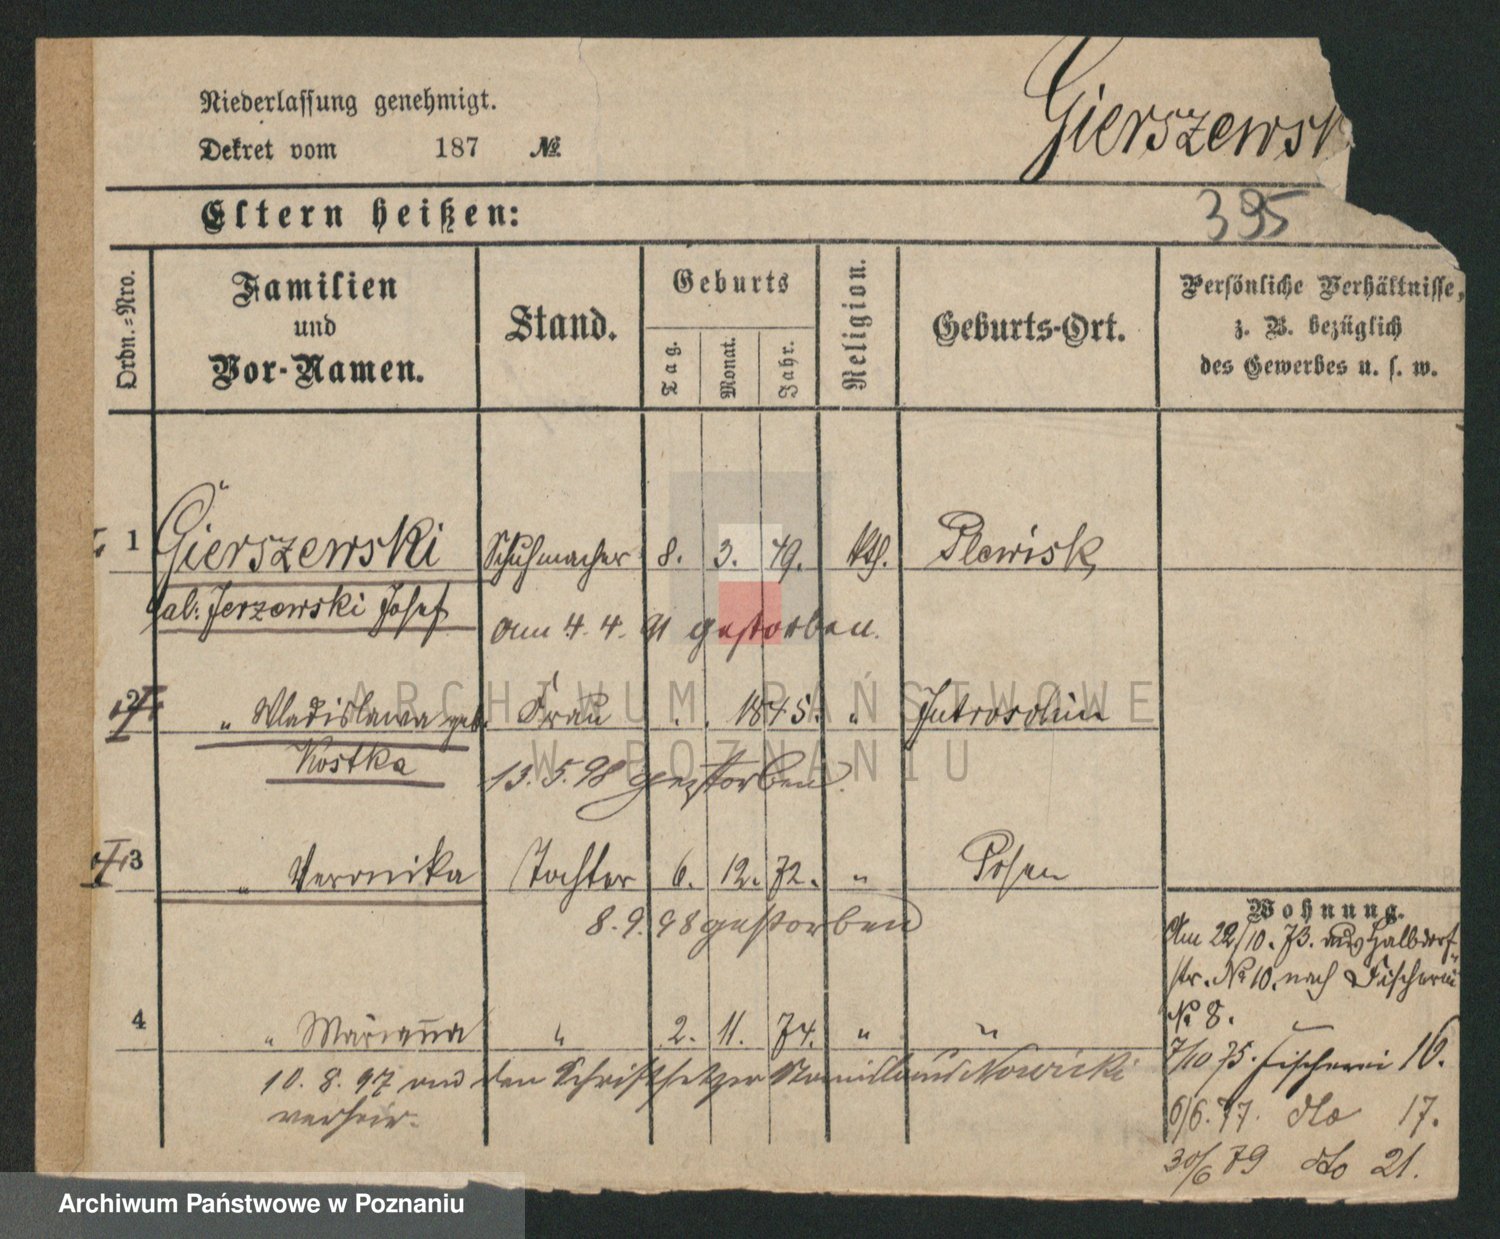 Niederlassung genehmigt.
Dekret vom 187 №
Gierszewsk
Eltern heißen:
395
Ordn.-Nro.
Familien
und
Vor-Namen.
Stand.
Geburts
Tag.
Monat.
Jahr.
Religion.
Geburts-Ort.
Persönliche Verhältnisse,
z. B. bezüglich
des Gewerbes u. s. w.
1 Gierszewski Schuhmacher 8. 3. 49. kth. Plewisk
al. Jerzewski Josef
am 4. 4. 91 gestorben.
2 " Wladislawa geb. Frau 1845. " Jutroschin
Kostka
13. 5. 98 gestorben.
3 " Veronika Tochter 6. 12. 72. " Posen
8. 9. 98 gestorben
4 " Marianna " 2. 11. 74. " "
10. 8. 97 den Schriftsetzer Stanislaus Nowicki
verheir.
Wohnung.
Am 22/10. 73. aus Halbdorf
str. № 10. nach Fischerei
№ 8.
7/10 75. Fischerei 16.
6/6. 77. dto 17.
30/6 79 dto 21.
ARCHIWUM PAŃSTWOWE
W POZNANIU
Archiwum Państwowe w Poznaniu